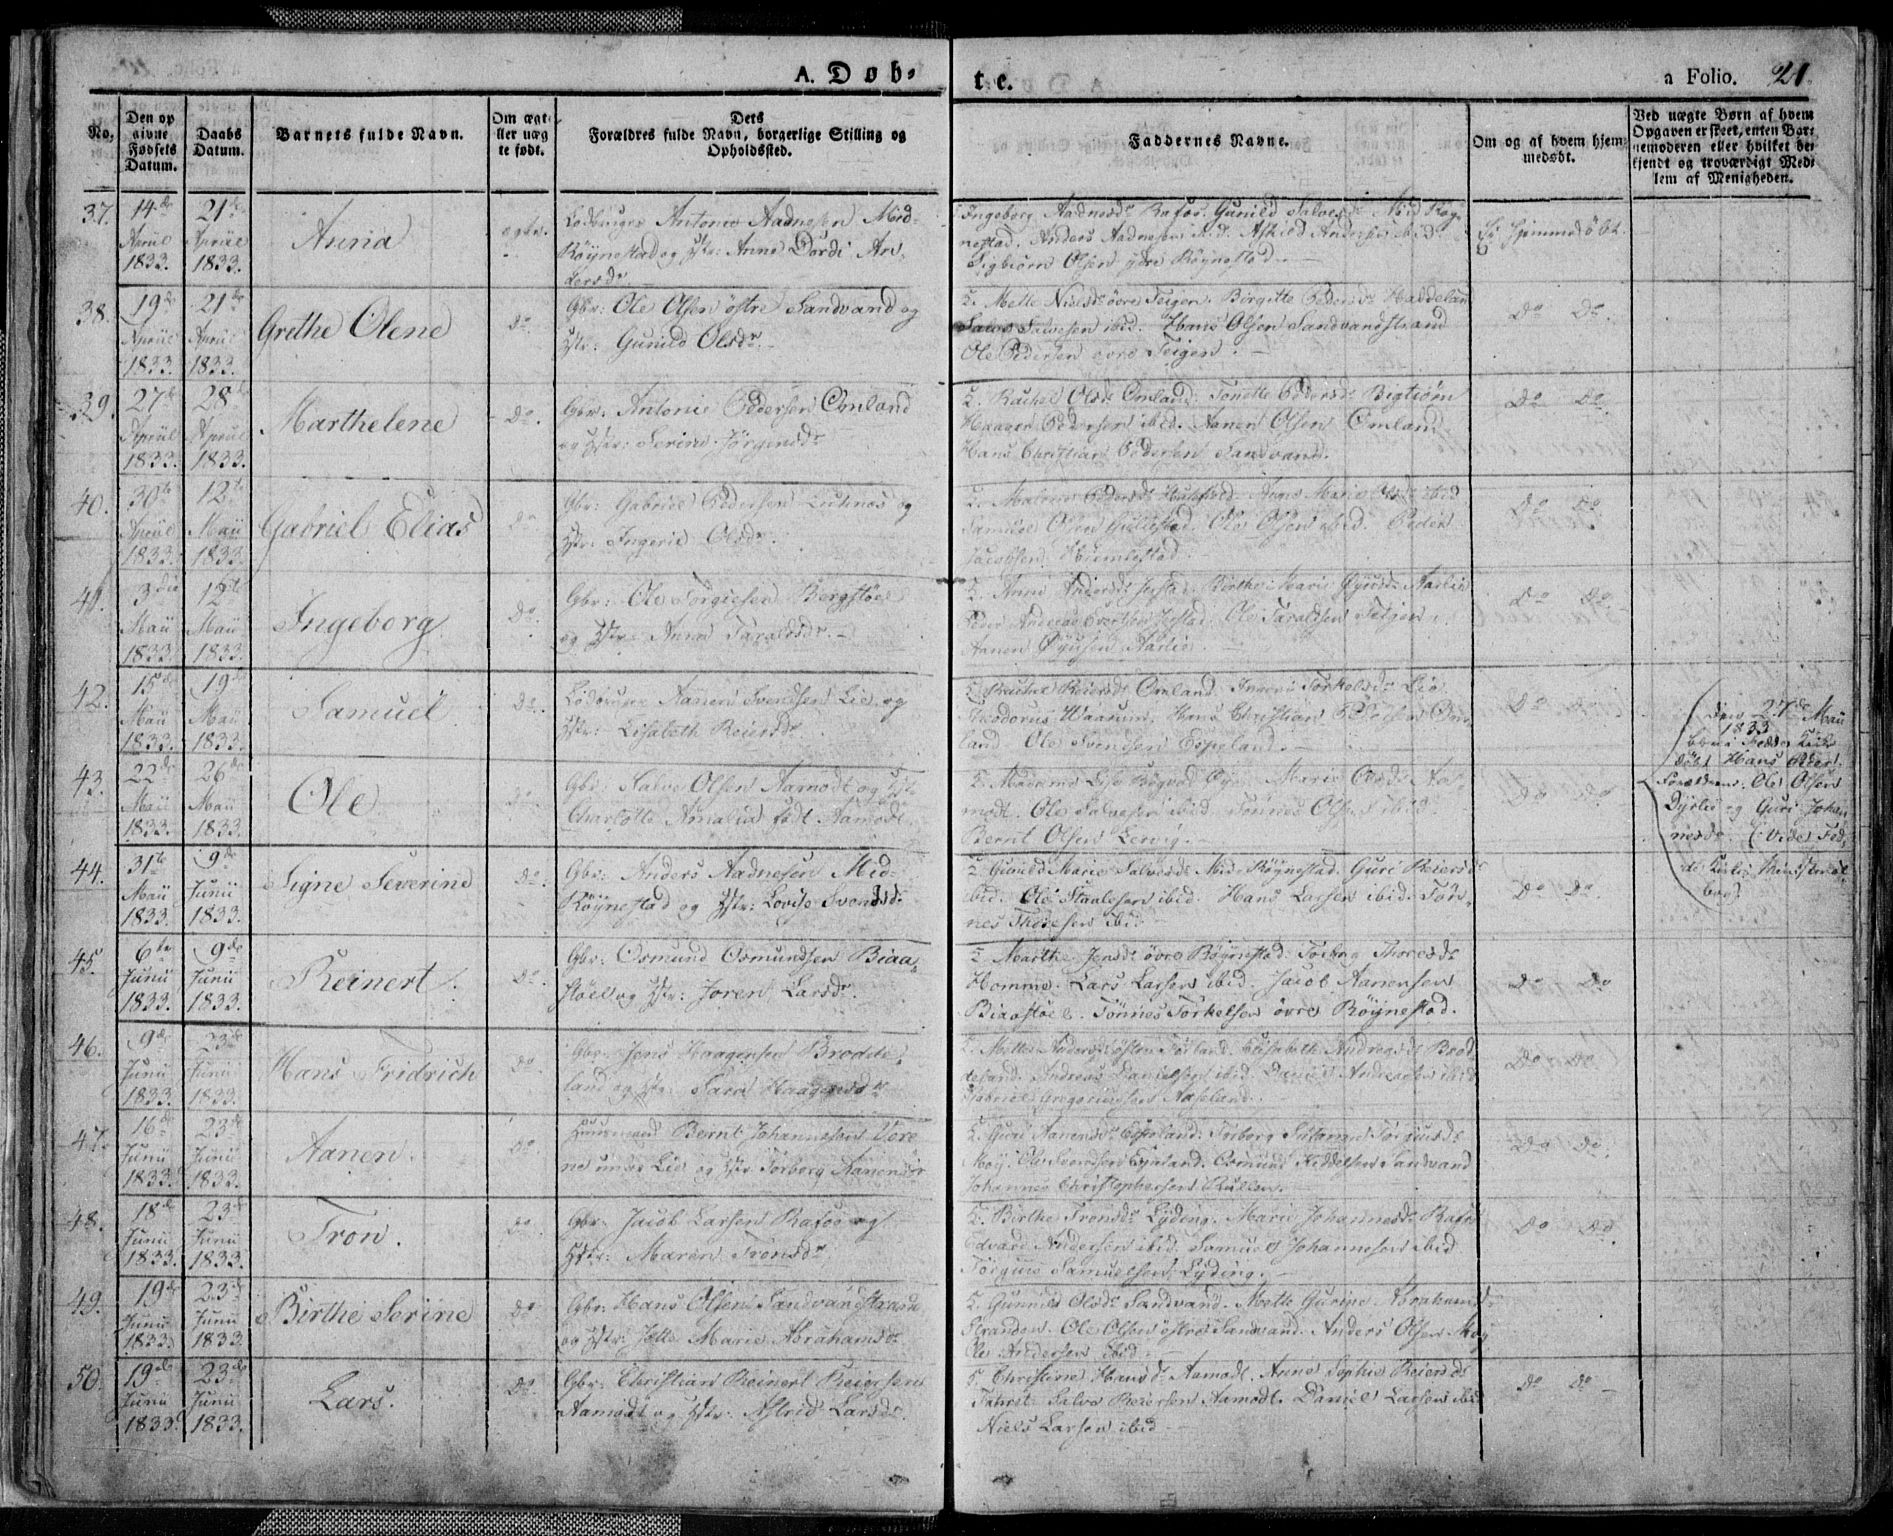 A. Døb-
te.
a Folio. 21.
No.
Den op
givne
Fødsels
Datum.
Daabs
Datum.
Barnets fulde Navn.
Om ægt-
eller uæg
te født.
Dets
Forældres fulde Navn, borgerlige Stilling og
Opholdssted.
Faddernes Navne.
Om og af hvem hjem-
medøbt.
Ved uægte Børn af hvem
Opgaven er skeet, enten Bar-
nemoderen eller hvilket be-
kjendt og troværdigt Med-
lem af Menigheden.
37.
14de
April
1833.
21de
April
1833.
Anna
ægte.
Antonie Aadnesen Mid-
Röynestad og Hstr: Anne Dordi An-
dersdr
Ingeborg Aadnesdr Rafos. Gunild Salvesdr Mid Röy-
nestad. Anders Aadnesen ibid.
Sigbiörn Olsen ydre Röynestad.
Ei hjemmedöbt.
38.
19de
April
1833.
21de
April
1833.
Grethe Olene
do.
Gbr: Ole Olsen östre Sandvand og
Hstr: Gunild Olsdr.
Mette Nielsdr övre Feigen. Birgitte Pedersdr Haddelan
Salve Salvesen ibid. Hans Olsen Sandvandstrand
Ole Pedersen övre Feigen.
do do.
39.
27de
April
1833.
28de
April
1833.
Marthelene
do.
Gbr: Antonie Pedersen Omland
og Hstr: Serine Jörgensdr
Rachel Olsdr Omland. Tonette Pedersdr Bigtiörn
Haagen Pedersen ibid. Aanen Olsen Omland
Hans Christian Pedersen Sandvand.
do do.
40.
30te
April
1833.
12te
Maii
1833.
Gabriel Elias
do
Gbr: Gabriel Pedersen og
Hstr: Ingerie Olsdr.
Anne Marie ibid
Samuel Olsen Ole Olsen ibid. Peder
Jacobsen
do do
41.
3die
Maii
1833.
12te
Maii
1833.
Ingeborg
do.
Gbr: Ole Torgiesen Bergstöel
og Hstr: Anna Taraldsdr.
Anne Andersdr Birthe Marie Öyusdr Aarlie
Ole Taraldsen Feigen
Aanen Öyusen Aarlie.
do do.
42.
15de
Maii
1833.
19de
Maii
1833.
Samuel
do.
Aanen Svendsen Lie og
Hstr: Elisabeth Reiersdr.
Reiersdr Omland. Torkelsdr Lie
Theodorus Waarum. Hans Christian Om-
land. Ole Svendsen Espeland.
do do.
43.
22de
Maii
1833.
26de
Maii
1833.
Ole
do.
Gbr: Salve Olsen Aamodt og Hstr
Charlotte Amalia födt Aamodt.
Madame Marie Olsdr Aa-
modt. Ole Salvesen ibid. Tönnes Olsen ibid
Bernt Olsen Lervig.
do do
Den 27de Maii
1833
döbt Hans Peder.
Forældrene: Ole Olsen
Dyrlie og Guri Johan
nesdr. (Vide Fed-
de Kirkes Ministerial-
bog).
44.
31te
Maii
1833.
9de
Junii
1833.
Signe Severine
do.
Gbr: Anders Aadnesen Mid-
Röynestad og Hstr: Lovise Svendsd.
Gunild Marie Salvesdr Mid-Röynestad. Guri Reiersdr
ibid. Ole Staalesen ibid. Hans Larsen ibid. Tön-
nes Thoresen ibid
do do.
45.
6te
Junii
1833.
9de
Junii
1833.
Reinert.
do.
Gbr: Osmund Osmundsen Biaa-
stöel og Hstr: Joren Larsdr.
Marthe Jensdr övre Röynestad. Torborg Thoresdr
Homme. Lars Larsen ibid. Jacob Aanensen
Biaastöel. Tönnes Torkelsen övre Röynestad.
do do
46.
9de
Junii
1833.
23de
Junii
1833.
Hans Fridrich
do.
Gbr: Jens Haagensen Brodde-
land og Hstr: Sara Haagensdr
Mette Elisabeth Andreasdr Brod
deland. Andreas Danielsen ibid. Daniel Andreasen ibid
Gabriel Gregoriussen Aaseland.
do do.
47.
16de
Junii
1833.
23de
Junii
1833.
Aanen.
do.
Huusmand Bernt Johannesen Vere
ne under Lie og Hstr. Torborg Aanensdr
Guri Aanensdr Espeland. Torborg Susanne
Moy. Ole Svendsen Espeland. Osmund Keddelsen Sandvand
Johannes Christophersen Kullen.
do do.
48.
18de
Junii
1833.
23de
Junii
1833.
Tron.
do.
Gbr. Jacob Larsen Rafos og
Hstr: Maren Tronsdr
Birthe Tronsdr Lyding. Marie Johannesdr Rafos
Edvard Andersen ibid. Samuel Johannesen ibid
Torgius Samuelsen Lyding.
do do.
49.
19de
Junii
1833.
23de
Junii
1833.
Birthe Serine
do
Gbr: Hans Olsen Sandvandstrand
og Hstr: Jette Marie Abrahamsdr
Gunild Olsdr Sandvand. Mette Gurine Abrahamsdr
Stranden. Ole Olsen östre Sandvand. Anders Olsen Moy
Ole Andersen ibid.
50.
19de
Junii
1833.
23de
Junii
1833.
Lars.
do.
Gbr: Christian Reinert Reiersen
Aamodt og Hstr: Astrid Larsdr
Christine Hansdr Aamodt. Anne Sophie Reiersdr
Salve Reiersen Aamodt. Daniel Larsen ibid
Niels Larsen ibid
do do